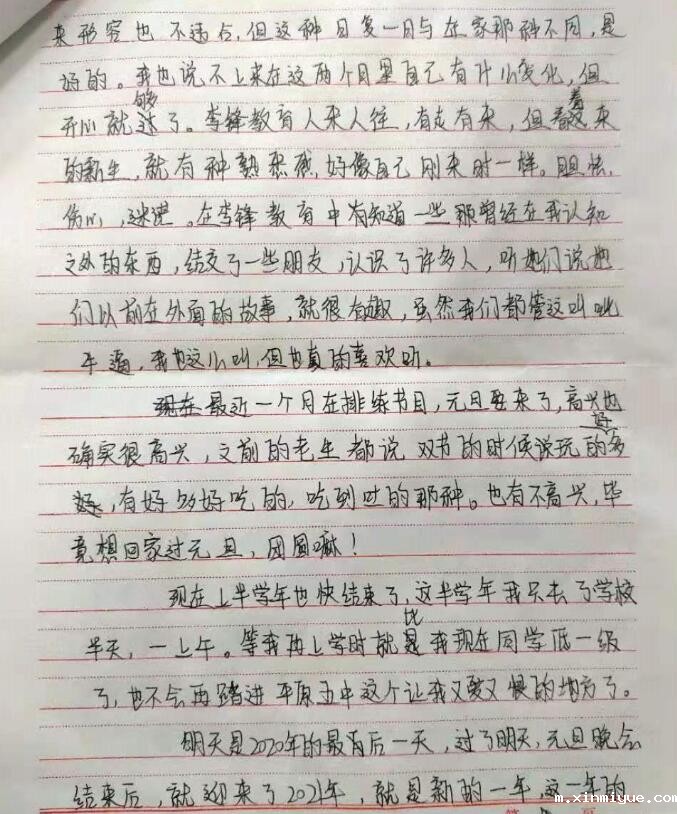 来形容也不违右,但这种日复一日与在家那种不同,是
好的。我也说不上来在这两个月里自己有什么变化,但
开心就够了。李锋教育人来人往,有走有来,但看着这来
的新生,就有种熟悉感,好像自己刚来时一样。胆怯,
伤心,迷茫。在李锋教育中有知道一些那曾经在我认知
之外的东西,结交了一些朋友,认识了许多人,听她们说她
们以前在外面的故事,就很有趣,虽然我们都管这叫吹
牛逼,我也这么叫,但也真的喜欢听。
最近一个月在排练节目,元旦要来了,高兴也
确实很高兴,之前的老生都说双节的时候说玩的好多
,有好多好吃的,吃到吐的那种。也有不高兴,毕
竟想回家过元旦,团圆嘛!
现在上半学年也快结束了,这半学年我只去了学校
半天,一上午。等我再上学时就比我现在同学低一级
了,也不会再踏进平原五中这个让我又爱又恨的地方了。
明天是2020年的最后一天,过了明天,元旦晚会
结束后,就迎来了2021年,就是新的一年,这一年的
m.xinmiyue.com